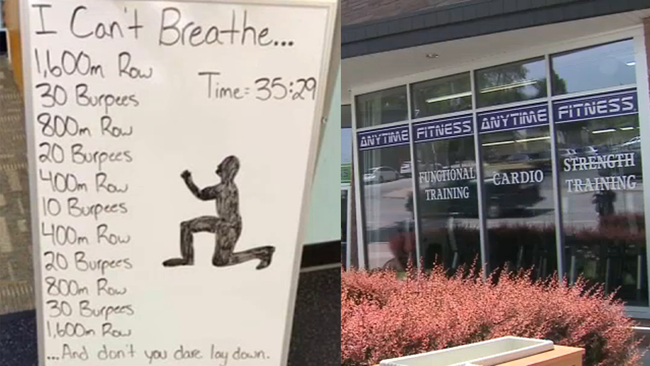 I Can't Breathe...
1,600m Row
Time = 35:29
30 Burpees
800m Row
20 Burpees
400m Row
10 Burpees
400m Row
20 Burpees
800m Row
30 Burpees
1,600m Row
...And don't you dare lay down.
ANYTIME FITNESS ANYTIME FITNESS
FUNCTIONAL
TRAINING
CARDIO
STRENGTH
TRAINING